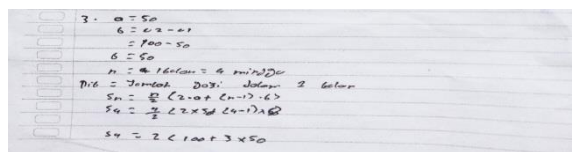 3. a = 50
b = u2 - u1
= 100 - 50
b = 50
n = 1 bulan = 4 minggu
Dit = Jumlah Dosi dalam 1 bulan
Sn = n/2 (2.a + (n-1).b)
S4 = 4/2 (2x50 (4-1)x
S4 = 2 (100 + 3 x 50